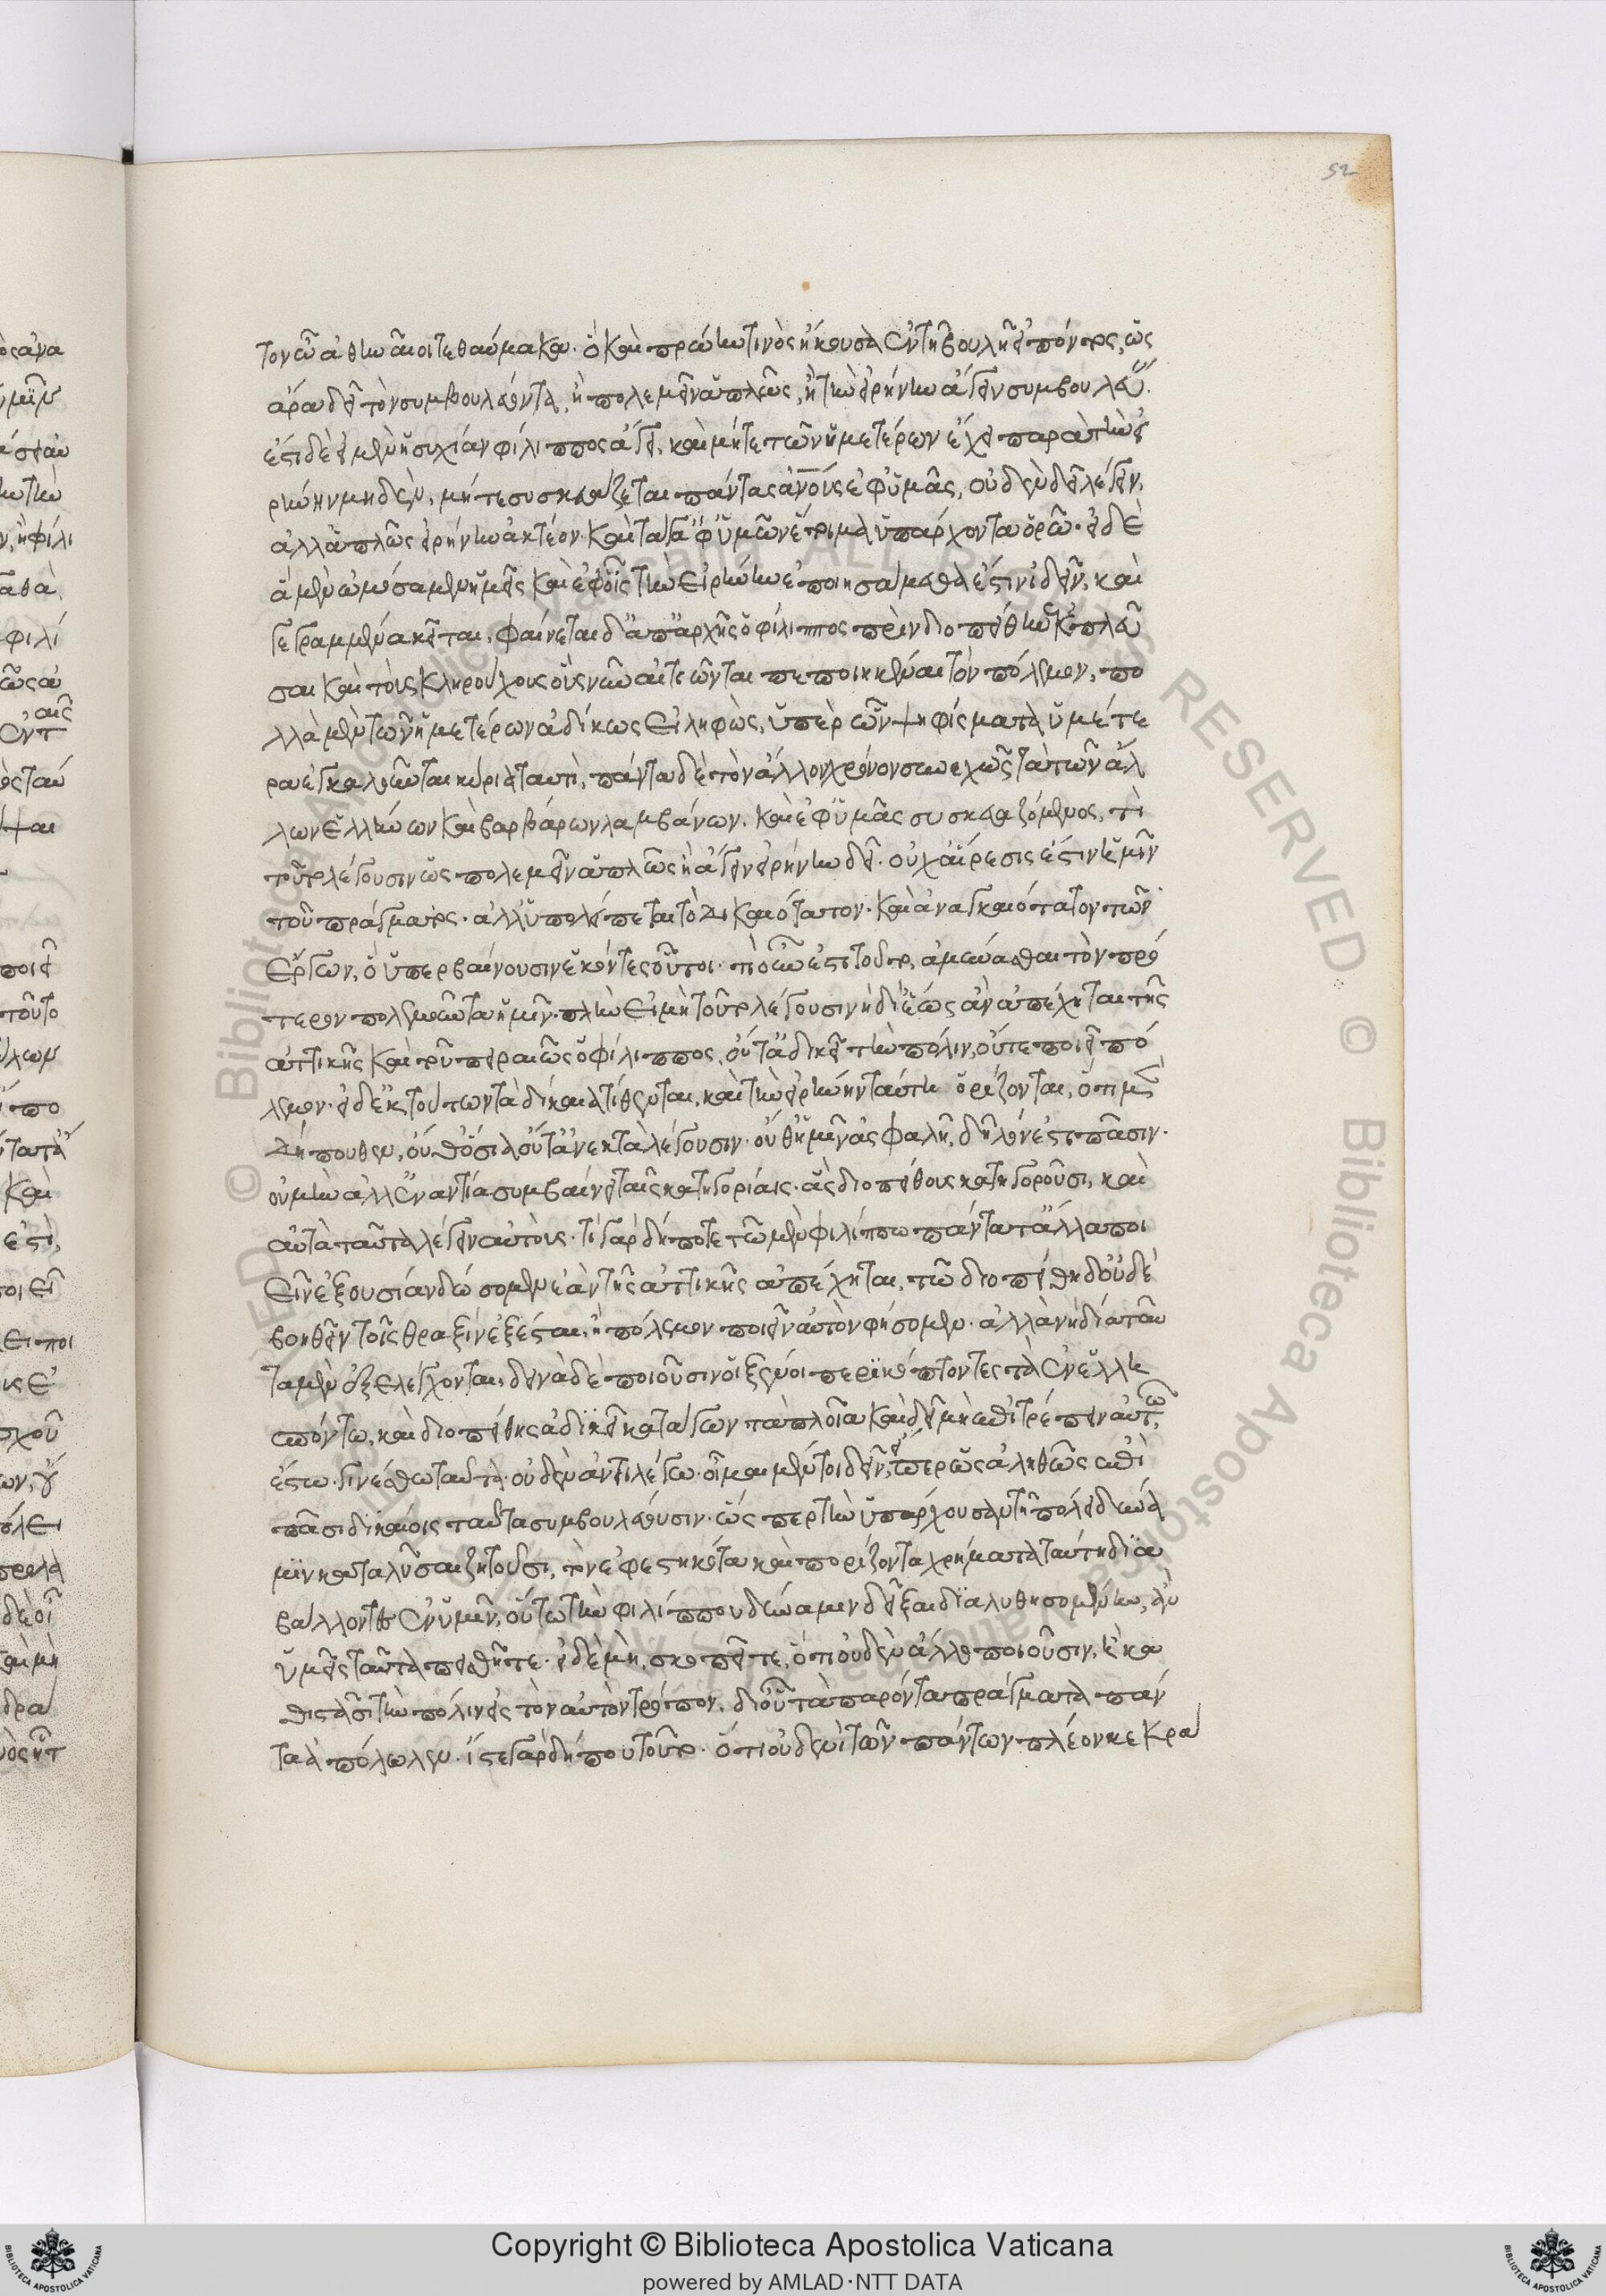 52
τον ὦ ἀθηναῖοι τεθαύμακα. ὃ καὶ πρώην τινὸς ἤκουσα ἐν τῇ βουλῇ εἰπόντος, ὡς
ἄρα δεῖ τὸν συμβουλεύοντα, ἢ πολεμεῖν ἁπλῶς, ἢ τὴν εἰρήνην ἄγειν συμβουλεύειν.
ἔστι δὲ εἰ μὲν ἡσυχίαν φίλιππος ἄγει, καὶ μήτε τῶν ἡμετέρων ἔχει παρὰ τὴν εἰ
ρήνην μηδὲν, μήτε συσκευάζεται πάντας ἀνούς ἐφ' ὑμᾶς, οὐδὲν δεῖ λέγειν,
ἀλλ' ἁπλῶς εἰρήνην ἀκτέον. καὶ τά γ' ἀφ' ὑμῶν ἕτοιμα ὑπάρχοντα ὁρῶ. εἰ δὲ
ἃ μὲν ὠμόσαμεν ἡμεῖς καὶ ἐφ' οἷς τὴν εἰρήνην ἐποιησάμεθα ἔστιν ἰδεῖν, καὶ
γεγραμμένα κεῖται, φαίνεται δ' ἀπ' ἀρχῆς ὁ φίλιππος πρὶν διοπείθην ἐκπλεῦ
σαι καὶ τοὺς κληρούχους οὓς νῦν αἰτιῶνται πεποιηκέναι τὸν πόλεμον, πο
λλὰ μὲν τῶν ἡμετέρων ἀδίκως εἰληφὼς, ὑπὲρ ὧν ψηφίσματα ὑμέτε
ρα ἐγκαλοῦντα κύρια ταυτὶ, πάντα δὲ τὸν ἄλλον χρόνον συνεχῶς τὰ τῶν ἄλ
λων ἑλλήνων καὶ βαρβάρων λαμβάνων, καὶ ἐφ' ὑμᾶς συσκευαζόμενος, τί
τοῦτο λέγουσιν ὡς πολεμεῖν ἁπλῶς ἢ ἄγειν εἰρήνην δεῖ. οὐχ αἵρεσις ἐστὶν ἡμῖν
τοῦ πράγματος. ἀλλ' ὑπολείπεται τὸ δικαιότατον. καὶ ἀναγκαιότατον τῶν
ἔργων, ὃ ὑπερβαίνουσιν ἑκόντες οὗτοι. τί οὖν ἐστι τοῦτο, ἀμύνασθαι τὸν πρό
τερον πολεμοῦντα ἡμῖν. πλὴν εἰ μὴ τοῦτο λέγουσιν νὴ δί' ἕως ἂν ἀπέχηται τῆς
ἀττικῆς καὶ τοῦ πειραιῶς ὁ φίλιππος, οὔτ' ἀδικεῖ τὴν πόλιν, οὔτε ποιεῖ πό
λεμον. εἰ δ' ἐκ τούτων τὰ δίκαια τίθενται, καὶ τὴν εἰρήνην ταύτην ὁρίζονται, ὅτι μὲν
δήπουθεν, οὔθ' ὅσια οὔτ' ἀνεκτὰ λέγουσιν. οὔθ' ἡμῖν ἀσφαλῆ, δῆλόν ἐστι πᾶσιν.
οὐ μὴν ἀλλ' ἐναντία συμβαίνει ταῖς κατηγορίαις. ἃς διοπείθους κατηγοροῦσι, καὶ
αὐτὰ ταῦτα λέγειν αὐτοὺς. τί γὰρ δήποτε τῶ μὲν φιλίππω πάντα τἄλλα ποι
εῖν ἐξουσίαν δώσομεν ἐὰν τῆς ἀττικῆς ἀπέχηται, τῶ διοπείθη δ' οὐδὲ
βοηθεῖν τοῖς θραξὶν ἐξέσται, ἢ πόλεμον ποιεῖν αὐτὸν φήσομεν. ἀλλὰ νὴ δία ταῦ
τα μὲν ἐξελέγχονται, δεινὰ δὲ ποιοῦσιν οἱ ξένοι περικόπτοντες τὰ ἐν ἑλλη
σπόντω, καὶ διοπείθης ἀδικεῖ κατάγων τὰ πλοῖα καὶ δεῖ μὴ ἐπιτρέπειν αὐτῶ,
ἔστω. γινέσθω ταῦτα. οὐδὲν ἀντιλέγω. οἶμαι μέντοι δεῖν, εἴπερ ὡς ἀληθῶς ἐπὶ
πᾶσι δικαίοις ταῦτα συμβουλεύουσιν. ὥσπερ τὴν ὑπάρχουσαν τῇ πόλει δύνα
μιν καταλῦσαι ζητοῦσι, τὸν ἐφεστηκότα καὶ πορίζοντα χρήματα ταύτη δια
βάλλοντες ἐν ὑμῖν, οὕτω τὴν φιλίππου δύναμιν δεῖξαι διαλυθησομένην, ἂν
ὑμεῖς ταῦτα πεισθῆτε. εἰ δὲ μὴ, σκοπεῖτε, ὅτι οὐδὲν ἄλλο ποιοῦσιν, ἢ κα
θιστᾶσι τὴν πόλιν εἰς τὸν αὐτὸν τρόπον, δι' οὗ τὰ παρόντα πράγματα πάν
τα ἀπόλωλεν. ἴστε γὰρ δήπου τοῦτο. ὅτι οὐδενὶ τῶν πάντων πλέον κεκρά
Copyright © Biblioteca Apostolica Vaticana
powered by AMLAD·NTT DATA